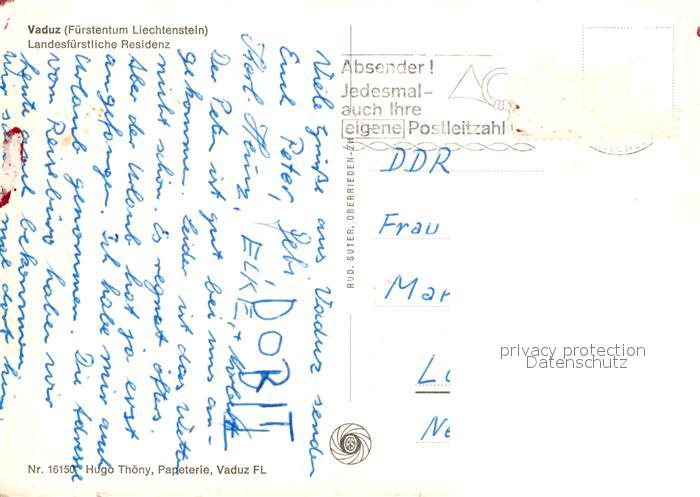 Vaduz (Fürstentum Liechtenstein)
Landesfürstliche Residenz
Viele Grüße aus Vaduz senden
Euch Peter, Gebi, DORIT
Karl-Heinz, ELKE, +
Der Peter ist gut bei uns an-
gekommen. Leider ist das Wetter
nicht schön. Es regnet öfters.
Aber der Urlaub hat ja erst
angefangen. Ich habe mir auch
Urlaub genommen. Die Adresse
vom Reisebüro haben wir
heute auch bekommen
mal dort hin
Absender!
Jedesmal-
auch Ihre
eigene Postleitzahl
RUD. SUTER, OBERRIEDEN-ZH
DDR
Frau
Mar
L
Ne
privacy protection
Datenschutz
Nr. 16150 Hugo Thöny, Papeterie, Vaduz FL